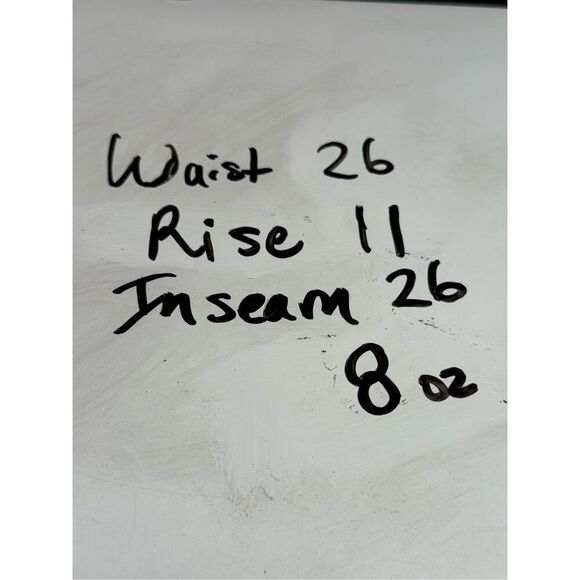 Waist 26
Rise 11
Inseam 26
8 oz